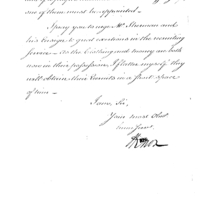 one of them must be appointed –
I pray you to urge Mr. Stevenson and
his Ensign to great exertions in the recruiting
service – As the Cloathing and money are both
now in their possession, I flatter myself they
will obtain their Recruits in a short space
of time –
I am, Sir,
Your most Obed
HKnox